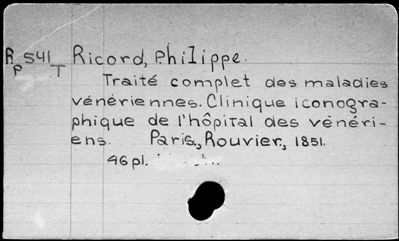 R 541 Ricord, Philippe.
P T
Traité complet des maladies
vénériennes. Clinique iconogra-
phique de l'hôpital des vénéri-
ens. Paris, Rouvier, 1851.
46 pl.